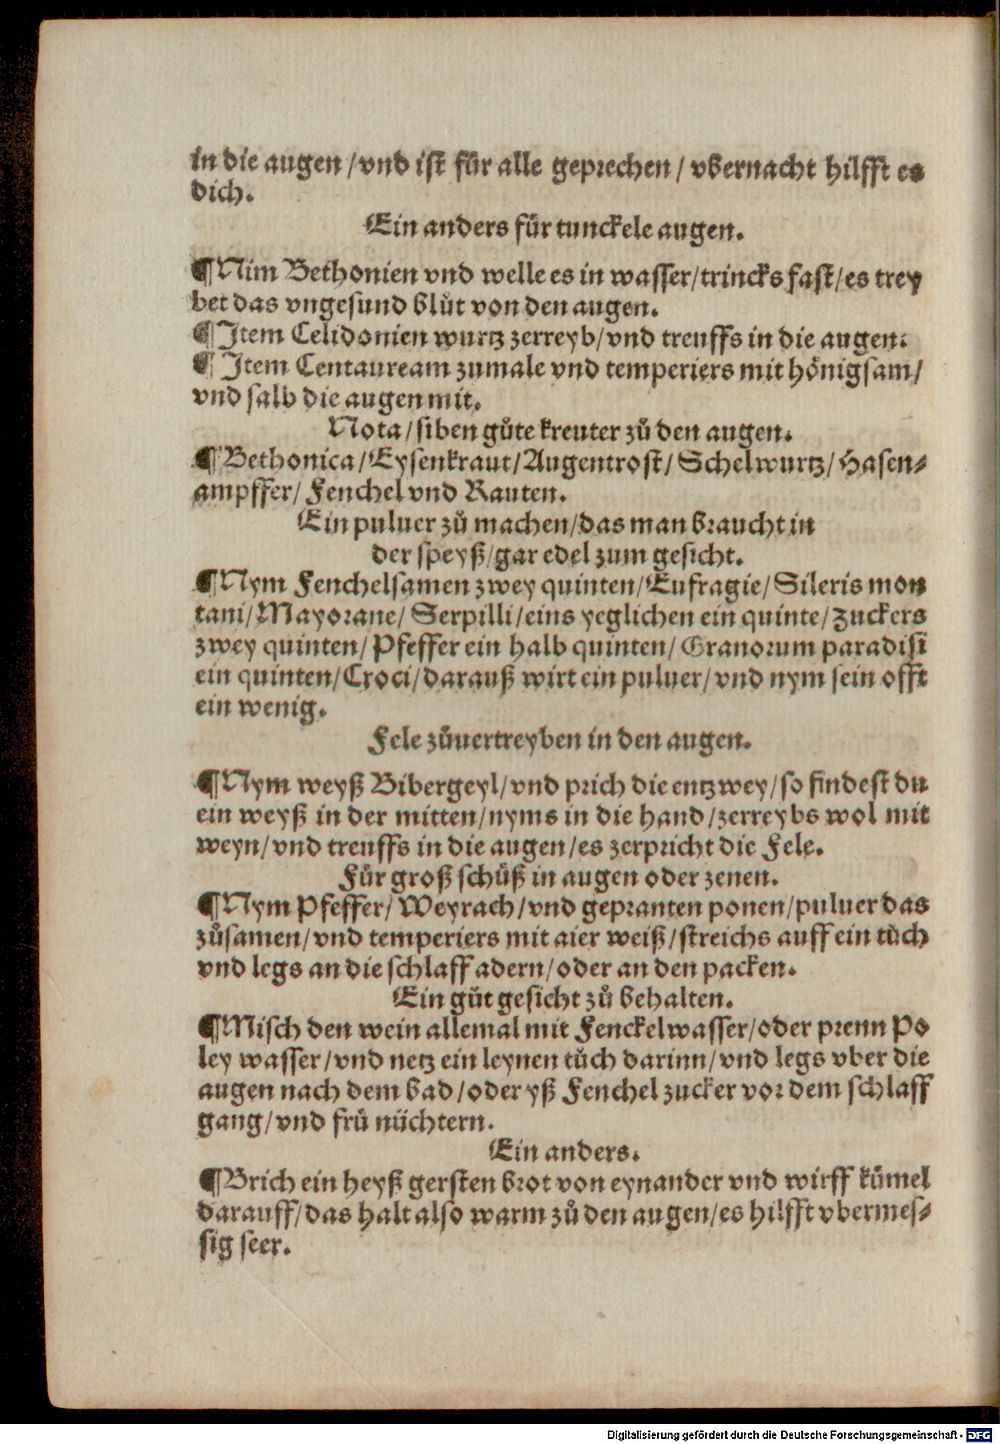 in die augen/vnd ist für alle geprechen/vbernacht hilfft es
dich.
Ein anders für tunckele augen.
¶Nim Bethonien vnd welle es in wasser/trincks fast/es trey
bet das vngesund blůt von den augen.
¶Item Celidonien wurtz zerreyb/vnd treuffs in die augen.
¶Item Centauream zumale vnd temperiers mit hönigsam/
vnd salb die augen mit.
Nota/siben gůte kreuter zů den augen.
¶Bethonica/Eysenkraut/Augentrost/Schelwurtz/Hasen-
ampffer/Fenchel vnd Rauten.
Ein puluer zů machen/das man braucht in
der speyß/gar edel zum gesicht.
¶Nym Fenchelsamen zwey quinten/Eufragie/Sileris mon
tani/Mayorane/Serpilli/eins yeglichen ein quinte/Zuckers
zwey quinten/Pfeffer ein halb quinten/Granorum paradisi
ein quinten/Croci/darauß wirt ein puluer/vnd nym sein offt
ein wenig.
Fele zůuertreyben in den augen.
¶Nym weyß Bibergeyl/vnd prich die entzwey/so findest du
ein weyß in der mitten/nyms in die hand/zerreybs wol mit
weyn/vnd treuffs in die augen/es zerpricht die Fele.
Für groß schüß in augen oder zenen.
¶Nym Pfeffer/Weyrach/vnd gepranten ponen/puluer das
zůsamen/vnd temperiers mit aier weiß/streichs auff ein tůch
vnd legs an die schlaff adern/oder an den packen.
Ein gůt gesicht zů behalten.
¶Misch den wein allemal mit Fenckelwasser/oder prenn Po
ley wasser/vnd netz ein leynen tůch darinn/vnd legs vber die
augen nach dem bad/oder yß Fenchel zucker vor dem schlaff
gang/vnd frü nüchtern.
Ein anders.
¶Brich ein heyß gersten brot von eynander vnd wirff kümel
darauff/das halt also warm zů den augen/es hilfft vbermes-
sig seer.
Digitalisierung gefördert durch die Deutsche Forschungsgemeinschaft - DFG